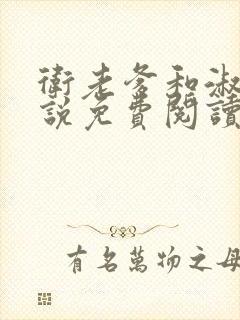 衛老爹和淑
說免費閱讀
有名萬物之母